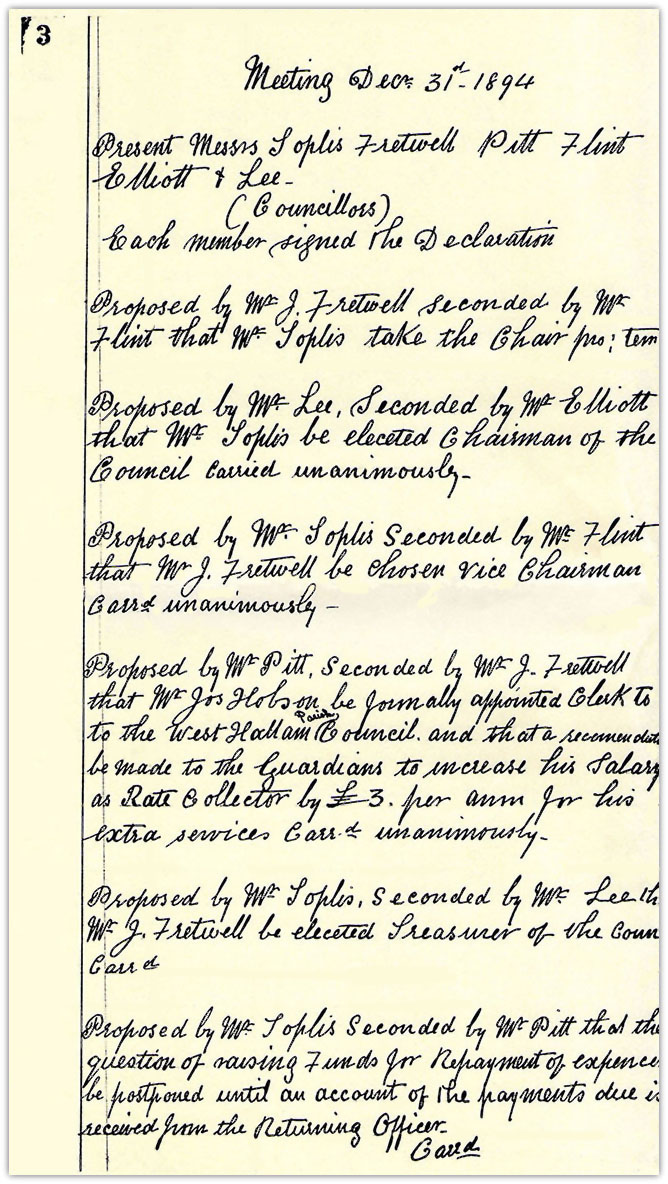 3
Meeting Decr 31st 1894
Present Messrs Soplis Fretwell Pitt Flint
Elliott & Lee -
(Councillors)
Each member signed the Declaration
Proposed by Mr J. Fretwell seconded by Mr
Flint that Mr Soplis take the Chair pro: tem
Proposed by Mr Lee, Seconded by Mr Elliott
that Mr Soplis be eleceted Chairman of the
Council Carried unanimously -
Proposed by Mr Soplis Seconded by Mr Flint
that Mr J. Fretwell be Chosen Vice Chairman
Carrd unanimously -
Proposed by Mr Pitt, Seconded by Mr J. Fretwell
that Mr Jos Hobson be formally appointed Clerk to
to the West Hallam Parish Council. and that a recomendat
be made to the Guardians to increase his Salary
as Rate Collector by £3. per anm for his
extra services Carrd unanimously -
Proposed by Mr Soplis, Seconded by Mr Lee th
Mr J. Fretwell be eleceted Treasurer of the Coun
Carrd
Proposed by Mr Soplis Seconded by Mr Pitt that the
question of raising Funds for Repayment of expence
be postponed until an account of the payments due is
received from the Returning Officer
Carrd